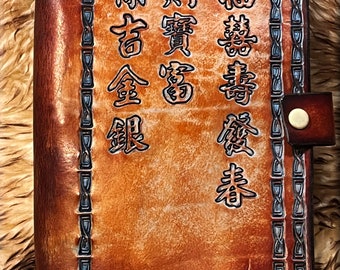 福囍壽發春
財寶富
吉金銀